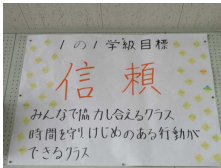 1の1学級目標
信頼
みんなで協力し合えるクラス
時間を守りけじめのある行動が
できるクラス